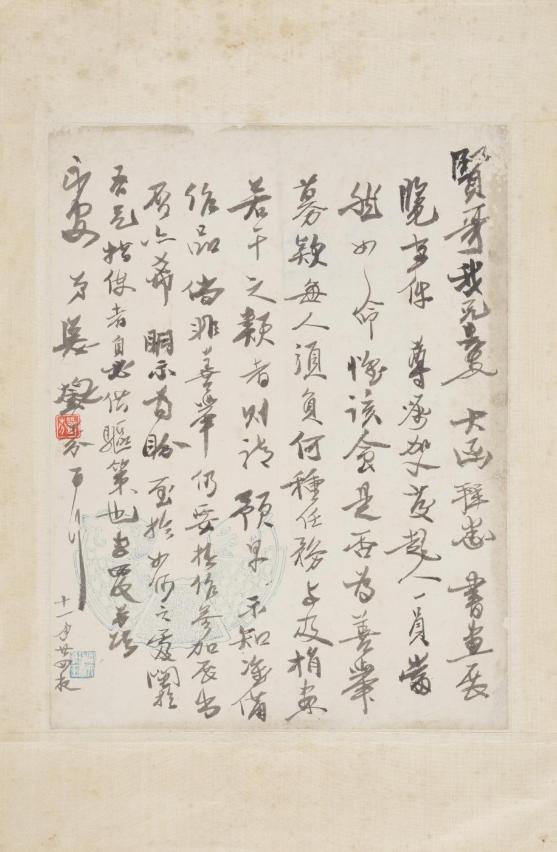 賢哥我兄长 大函拜悉 書畫展
覽事件 尊處加发起人一員當
然如命 惟該會是否為善舉
募款每人須負何種任務与及捐出
若干之款者則請 預早 示知準備
作品倘非善舉仍要拙作参加展出
亦希 明示為盼 至於如何之處
吾兄指使者自必供驅策也 专覆并頌
安 弟
百
十一月廿四夜